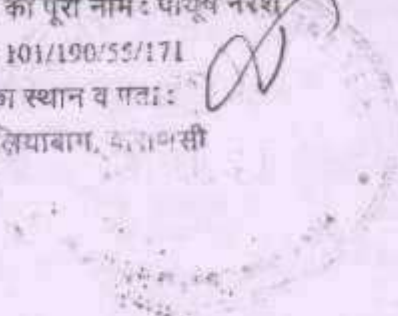 का पूरा नाम : पीयूष नरेश
101/190/55/171
का स्थान व पता :
लियाबाग, वाराणसी